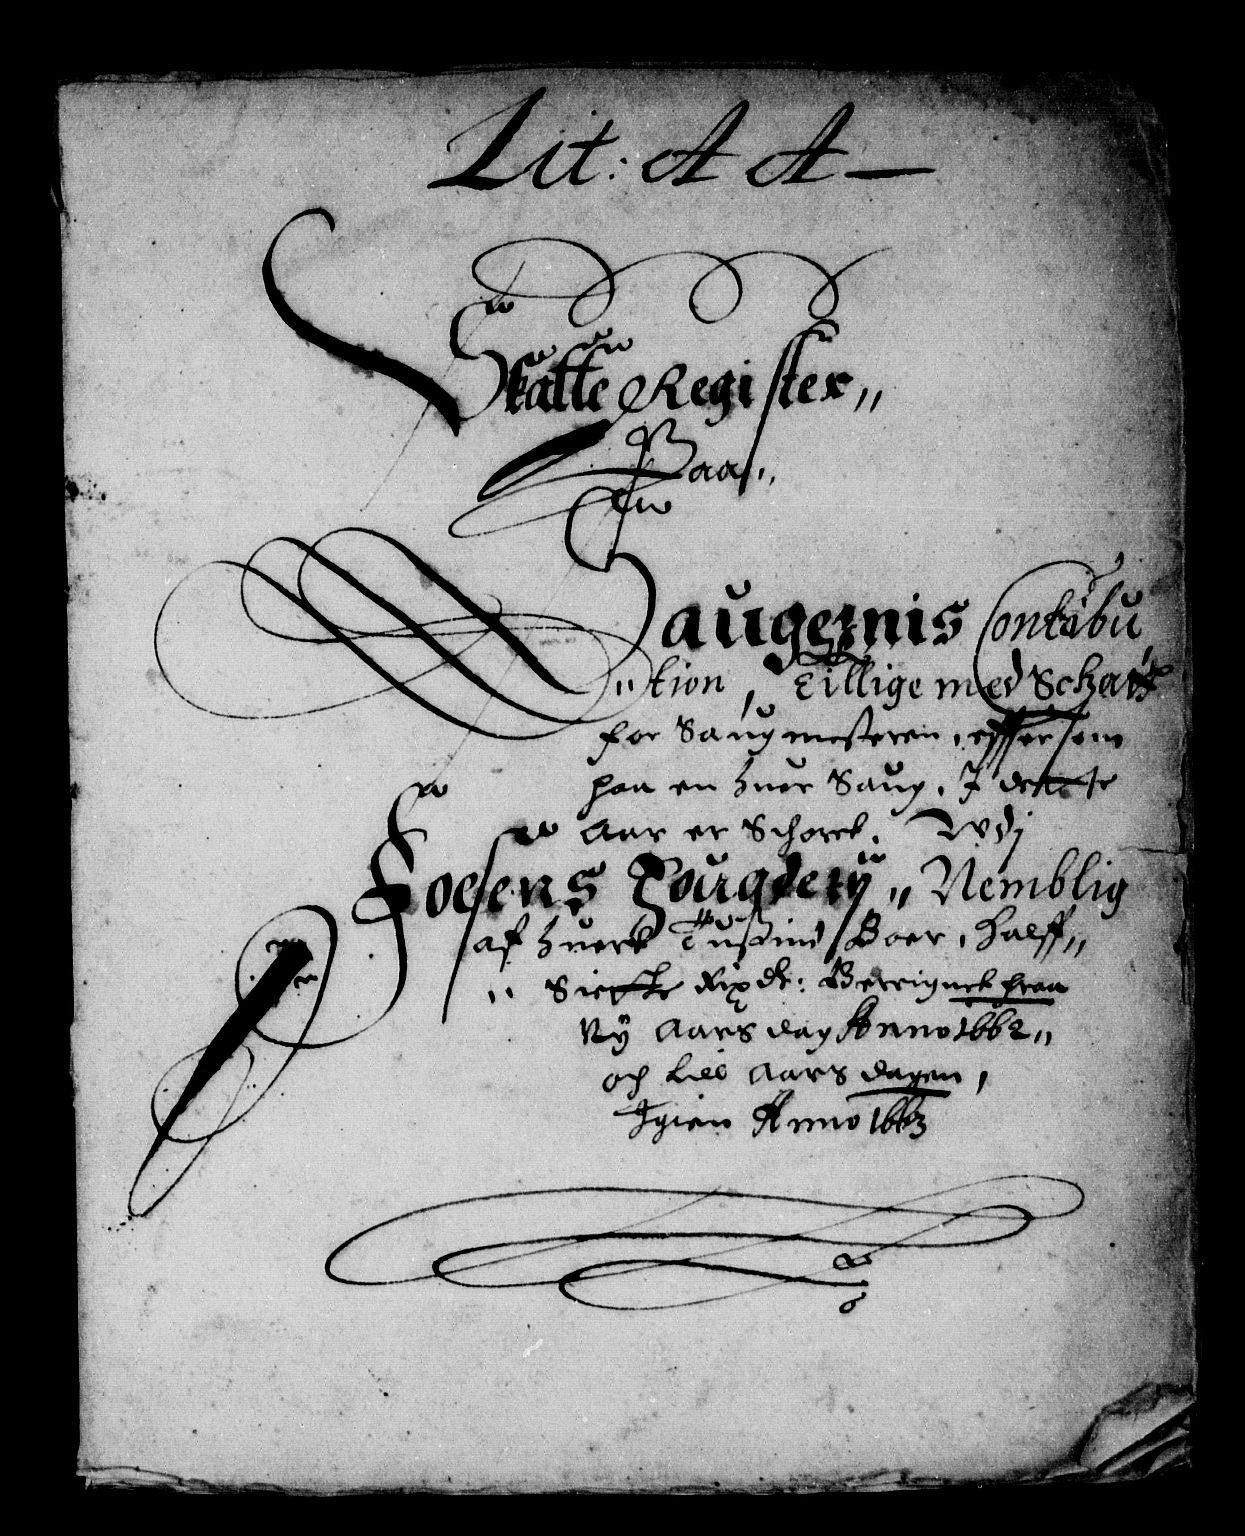 Lit: A A
Skatte Register,,
Paa,,
Saugernis Contribu
,,tion, Tillige med Schatt
for Saugmesteren, effter som
paa en huer Saug, I dette
Aar er Schoreb, Wdj
Foesens Fougderij,, Nemblig
af huert Tußind Boer, halff,,
,, Siette Rixdr: Bereignet fraa
Nÿ Aars dag Anno 1662,,
och till Aars dagen,
Igien Anno 1663